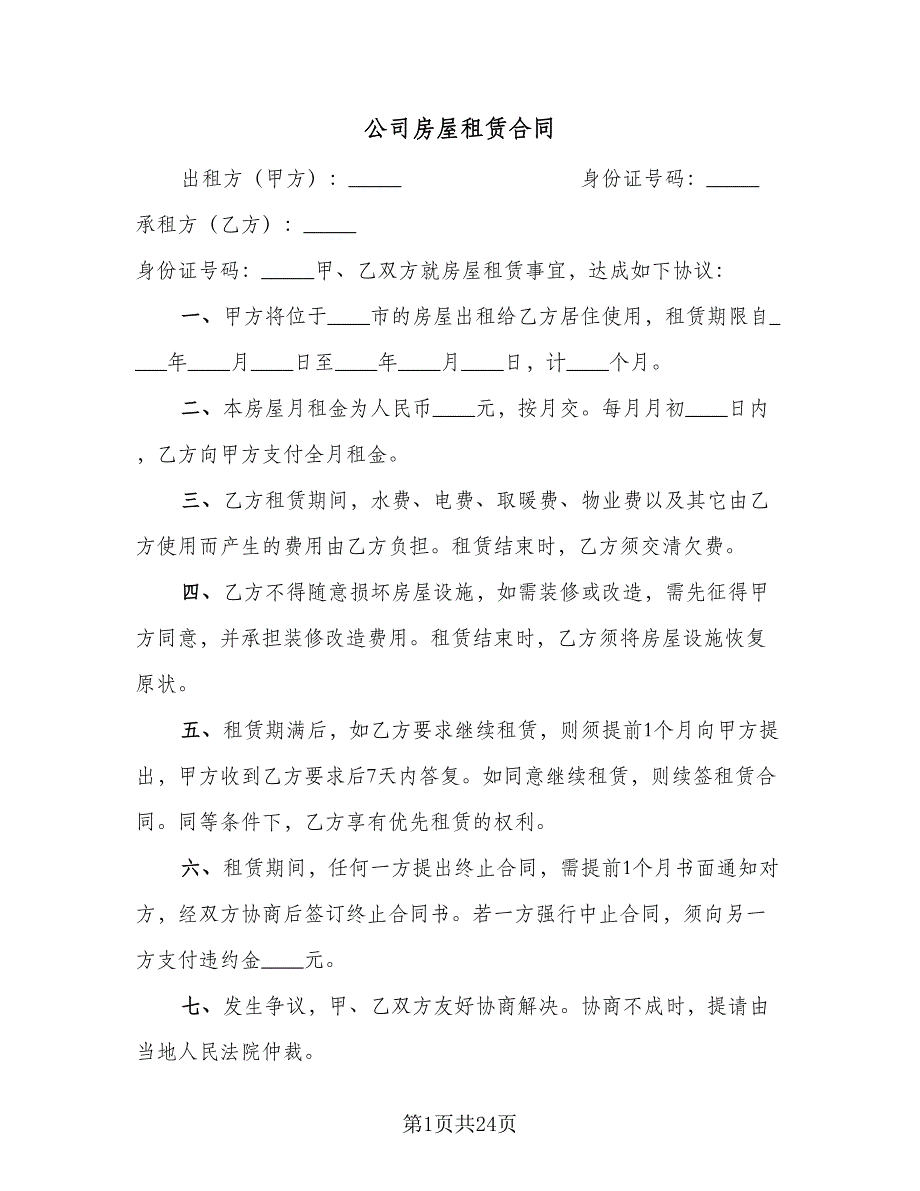 公司房屋租赁合同
出租方（甲方）：_____ 身份证号码：_____
承租方（乙方）：_____
身份证号码：_____甲、乙双方就房屋租赁事宜，达成如下协议：
一、甲方将位于____市的房屋出租给乙方居住使用，租赁期限自_
___年____月____日至____年____月____日，计____个月。
二、本房屋月租金为人民币____元，按月交。每月月初____日内
，乙方向甲方支付全月租金。
三、乙方租赁期间，水费、电费、取暖费、物业费以及其它由乙
方使用而产生的费用由乙方负担。租赁结束时，乙方须交清欠费。
四、乙方不得随意损坏房屋设施，如需装修或改造，需先征得甲
方同意，并承担装修改造费用。租赁结束时，乙方须将房屋设施恢复
原状。
五、租赁期满后，如乙方要求继续租赁，则须提前1个月向甲方提
出，甲方收到乙方要求后7天内答复。如同意继续租赁，则续签租赁合
同。同等条件下，乙方享有优先租赁的权利。
六、租赁期间，任何一方提出终止合同，需提前1个月书面通知对
方，经双方协商后签订终止合同书。若一方强行中止合同，须向另一
方支付违约金____元。
七、发生争议，甲、乙双方友好协商解决。协商不成时，提请由
当地人民法院仲裁。
第1页共24页